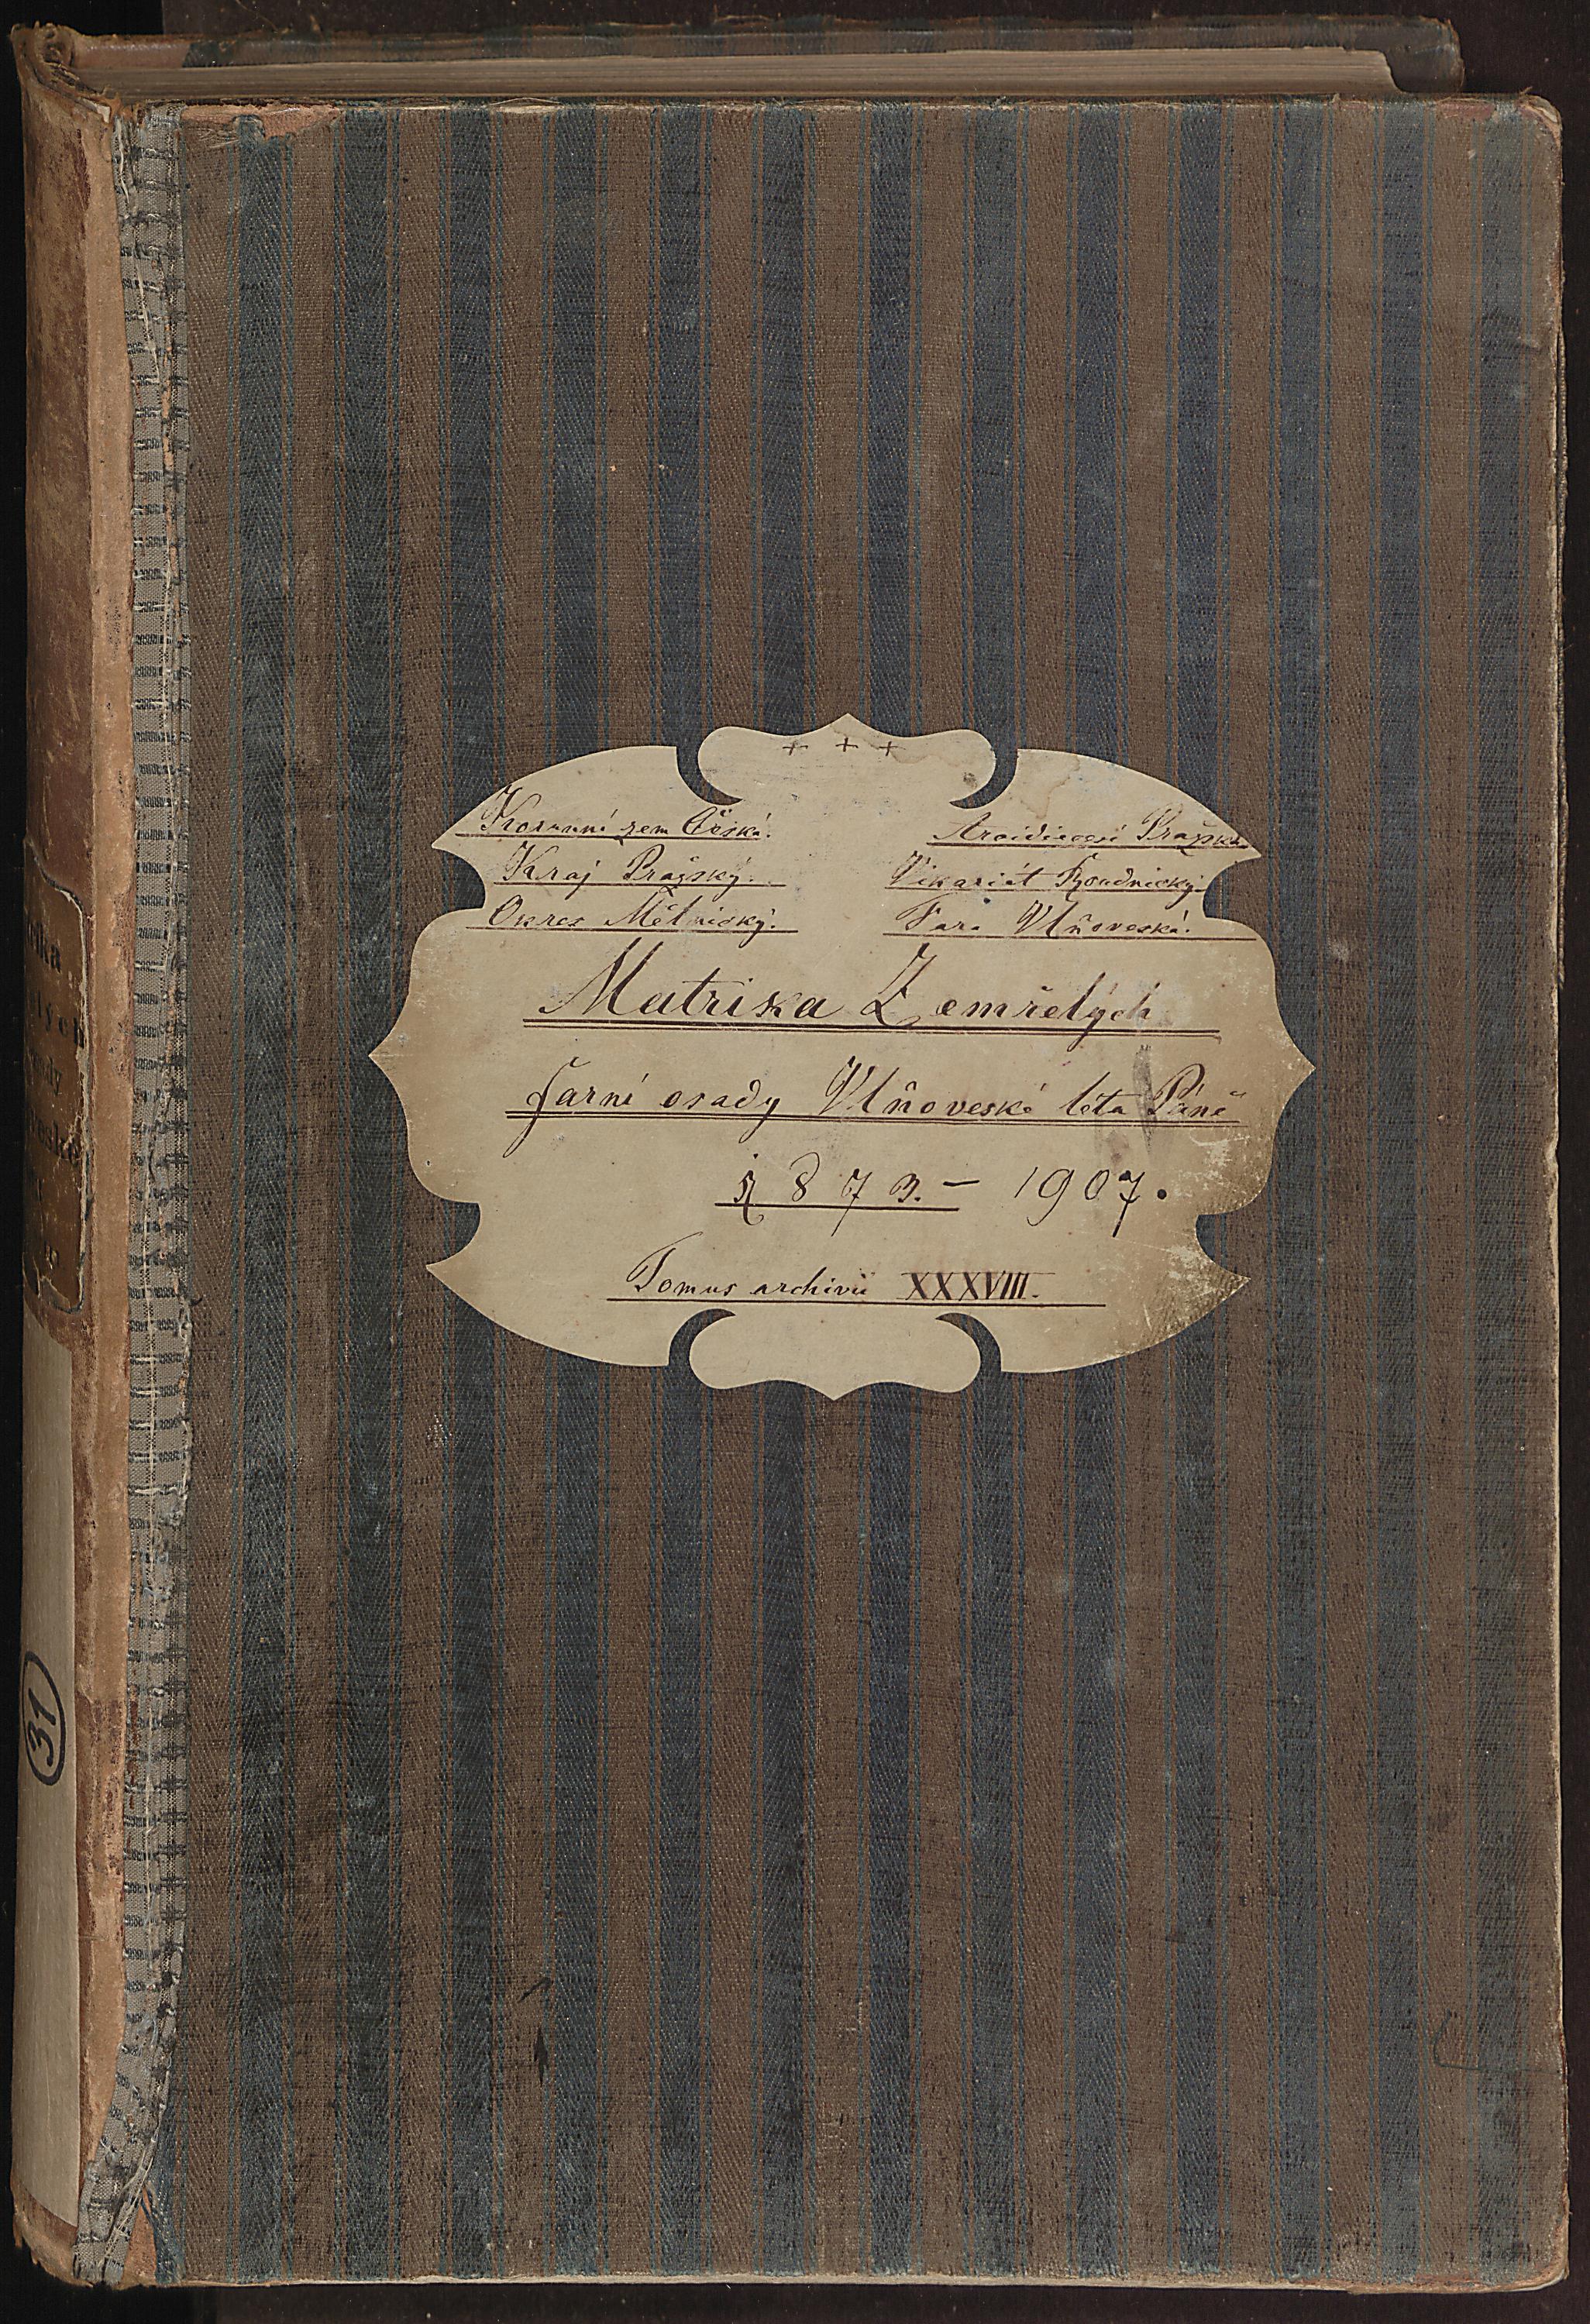 + + +
Korunní zem Česká.
Kraj Pražský.
Okres Mělnický.
Arcidiecesí Pražská
Vikariát Roudnický.
Fara Vlňoveská.
Matrika Zemřelých
farní osady Vlňoveské léta Páně
1873. – 1907.
Tomus archivii XXXVIII.
31